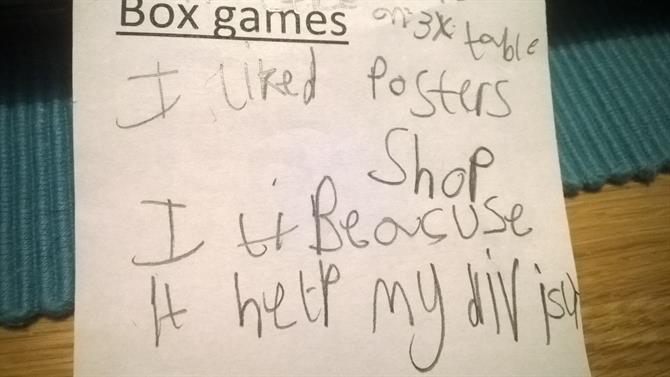 Box games
on 3x table
I liked Posters
Shop
I ti Beacuse
It help my divisi